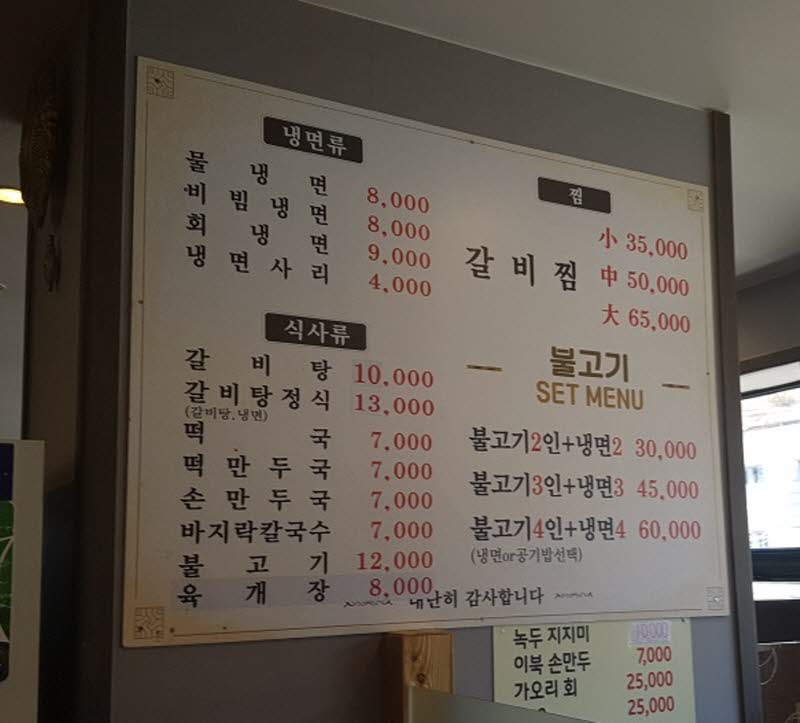 냉면류
물냉면 8,000
비빔냉면 8,000
회냉면 9,000
냉면사리 4,000
식사류
갈비탕 10,000
갈비탕정식 13,000
(갈비탕.냉면)
떡국 7,000
떡만두국 7,000
손만두국 7,000
바지락칼국수 7,000
불고기 12,000
육개장 8,000
찜
갈비찜
小 35,000
中 50,000
大 65,000
불고기
SET MENU
불고기2인+냉면2 30,000
불고기3인+냉면3 45,000
불고기4인+냉면4 60,000
(냉면or공기밥선택)
감사합니다
녹두 지지미 10,000
이북 손만두 7,000
가오리 회 25,000
25,000